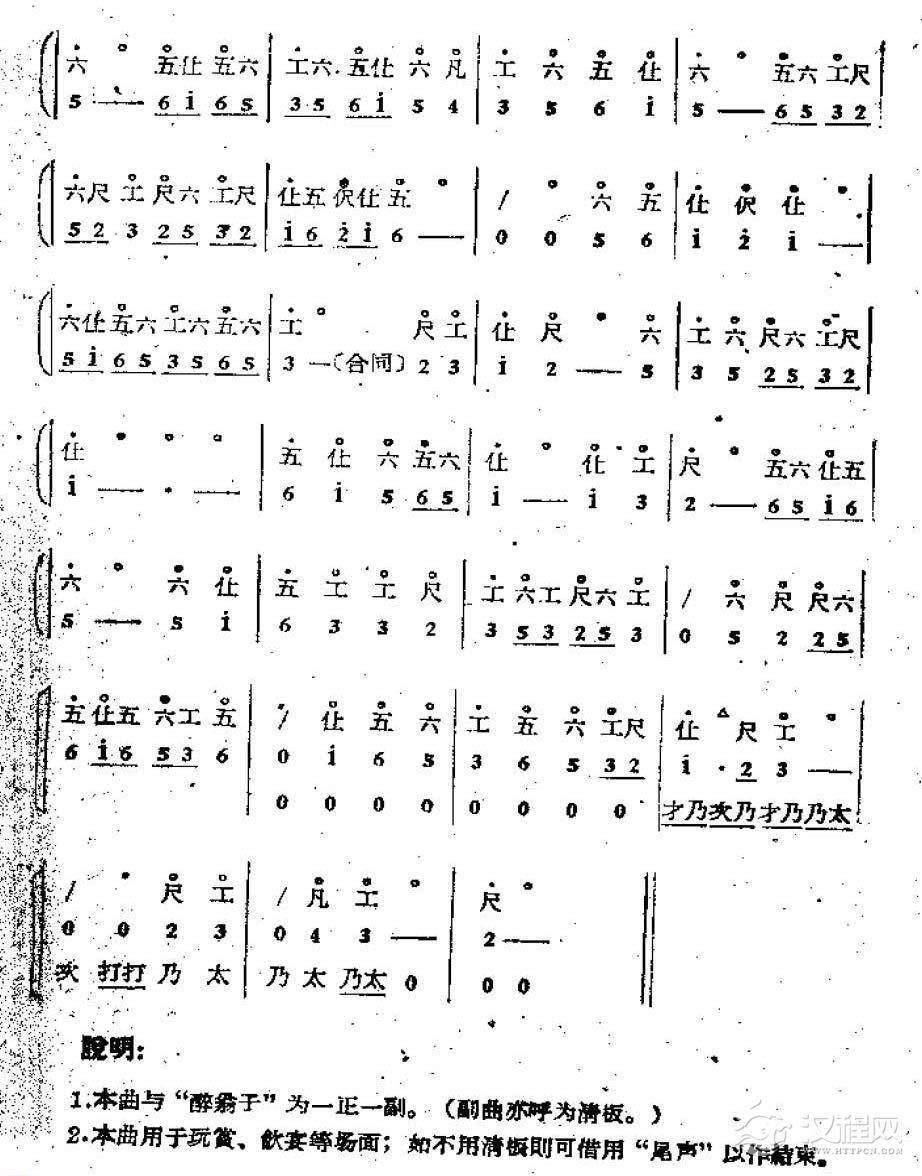 六 五仩 五六 | 工六. 五仩 六 凡 | 工 六 五 仩 | 六 五六 工尺
5 — 6i 65 | 35 6i 5 4 | 3 5 6 i | 5 — 65 32
六尺 工 尺六 工尺 | 仩五 伬仩 五 | / 六 五 | 仩 伬 仩
52 3 25 32 | i6 2i 6 — | 0 0 5 6 | i 2 i —
六仩 五六 工六 五六 | 工 尺 工 | 仩 尺 六 | 工 六 尺六 工尺
5i 65 35 65 | 3 —(合同) 2 3 | i 2 — 5 | 3 5 25 32
仩 | 五 仩 六 五六 | 仩 仩 工 | 尺 五六 仩五
i — · — | 6 i 5 65 | i — i 3 | 2 — 65 i6
六 六 仩 | 五 工 工 尺 | 工 六工 尺六 工 | / 六 尺 尺六
5 — 5 i | 6 3 3 2 | 3 53 25 3 | 0 5 2 25
五 仩五 六工 五 | / 仩 五 六 | 工 五 六 工尺 | 仩 尺 工
6 i6 53 6 | 0 i 6 5 | 3 6 5 32 | i · 2 3 —
0 0 0 0 | 0 0 0 0 | 才乃 㳄乃 才乃 乃太
/ 尺 工 | / 凡 工 | 尺
0 0 2 3 | 0 4 3 — | 2 —
㳄 打打 乃 太 | 乃 太 乃太 0 | 0 0
說明：
1.本曲与“醉翁子”为一正一副。（副曲亦呼为清板。）
2.本曲用于玩赏、飲宴等场面；如不用清板則可借用“尾声”以作結束。
汉程网
HTTPCN.COM